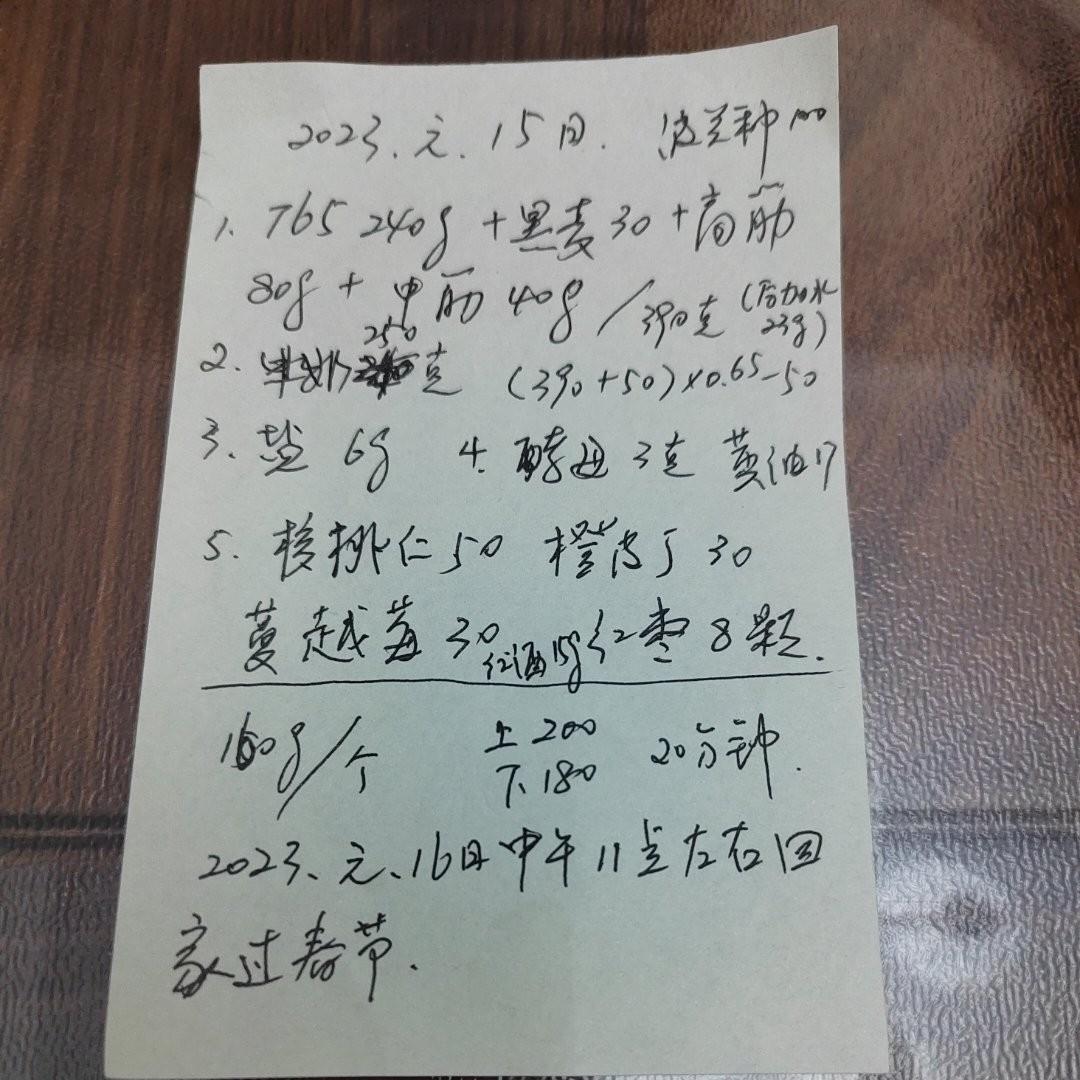 2023、元、15日. 波兰种100
1、T65 240g+黑麦30+高筋
80g+中筋40g/390克(后加水
23g)
2. 250克 (390+50)×0.65-50
3、盐6g 4. 酵母3克 黄油17
5. 核桃仁50 橙皮丁30
蔓越莓30 红酒15g 红枣8颗.
160g/个 上200 20分钟.
下180
2023、元、16日中午11点左右回
家过春节.